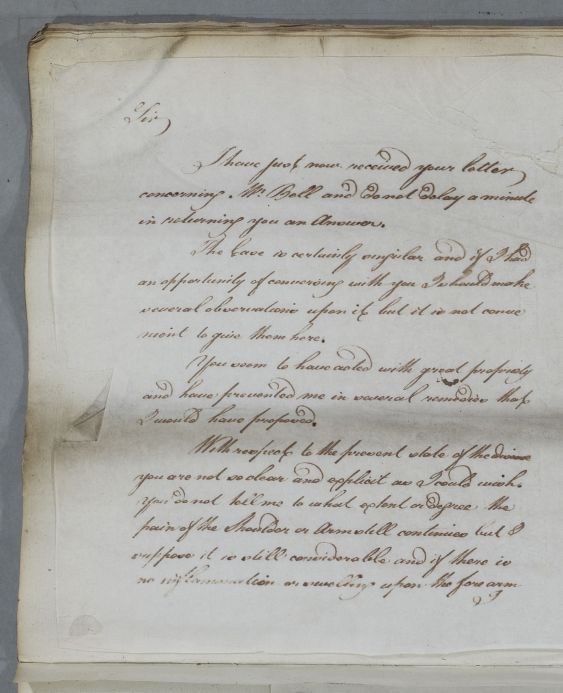 Sir
I have just now received your letter
concerning Mr. Bell and do not delay a minute
in returning you an Answer.
The Case is certainly singular and if I had
an opportunity of conversing with you I should make
several observations upon it but it is not conve
nient to give them here.
You seem to have acted with great propriety
and have prevented me in several remedies that
I would have proposed.
With respect to the present state of the disease
you are not so clear and explicit as I could wish.
You do not tell me to what extent or degree the
pain of the Shoulder or Arm still continues but I
suppose it is still considerable and if there is
no inflammation or swelling upon the fore arm